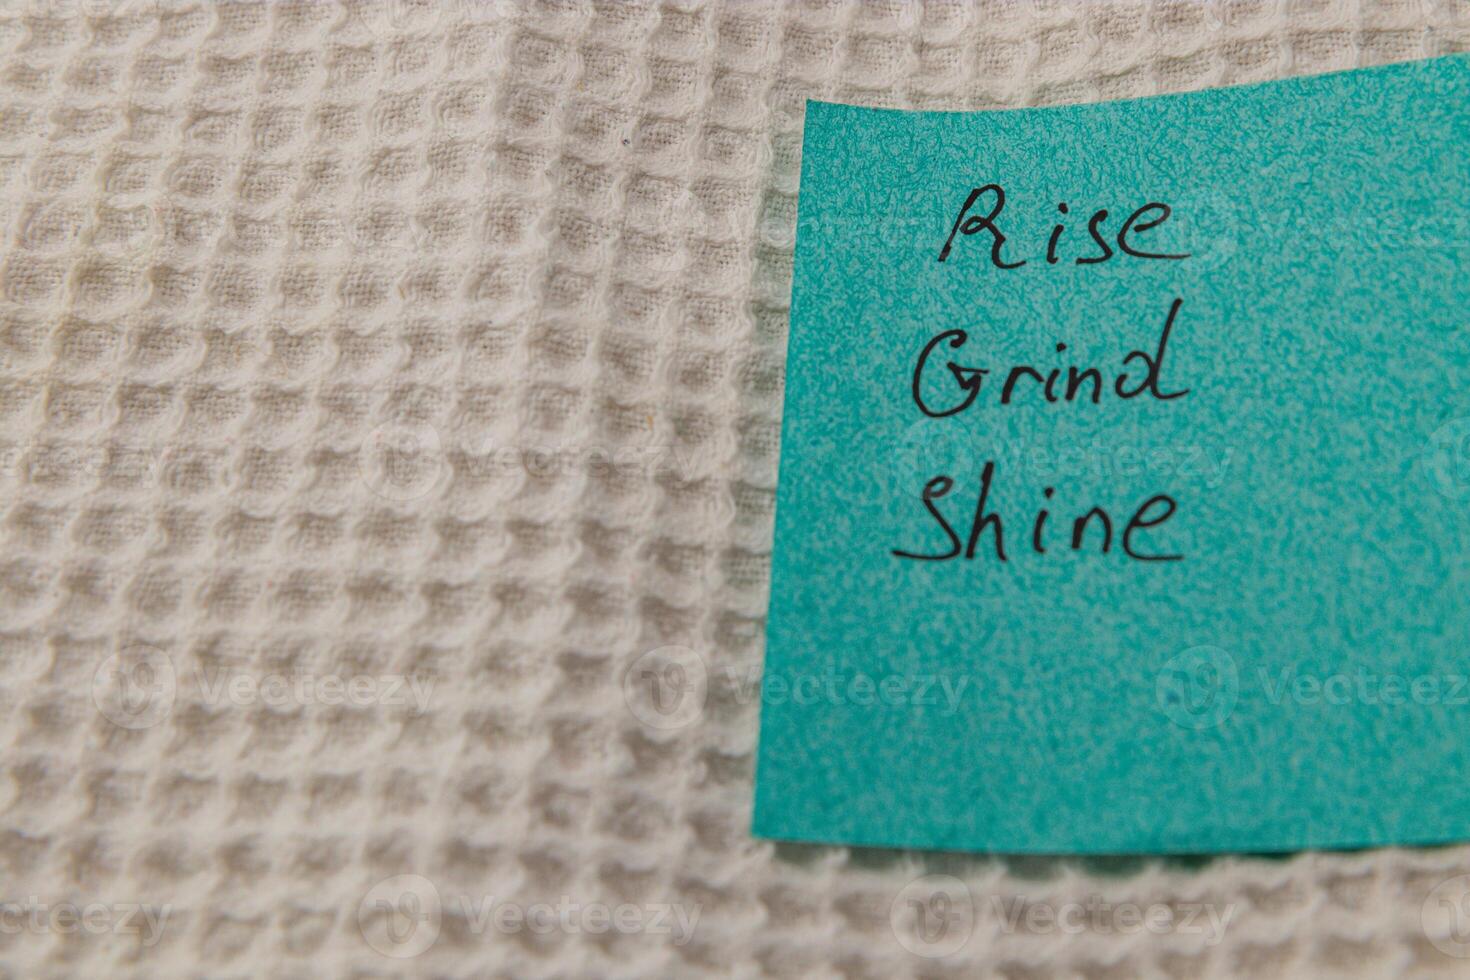 Rise
Grind
Shine
Vecteezy
Vecteezy
Vecteezy
Vecteezy
Vecteezy
Vecteezy
Vecteezy
Vecteezy